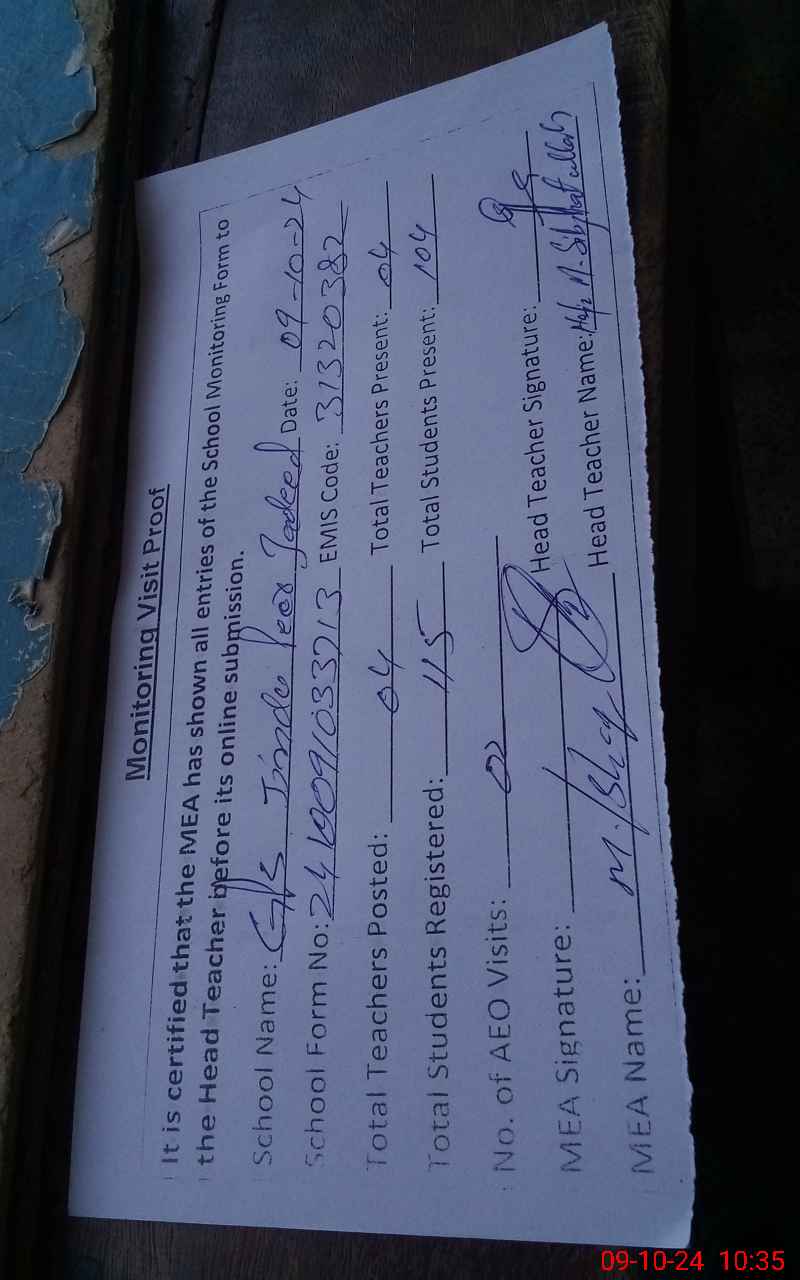 Monitoring Visit Proof
It is certified that the MEA has shown all entries of the School Monitoring Form to
the Head Teacher before its online submission.
School Name: GPS Jindu Peer Jadeed Date: 09-10-24
School Form No: 2410091033713 EMIS Code: 31320382
Total Teachers Posted: 04 Total Teachers Present: 04
Total Students Registered: 115 Total Students Present: 104
No. of AEO Visits: 02
MEA Signature: Head Teacher Signature:
MEA Name: M. Head Teacher Name: M.
09-10-24 10:35